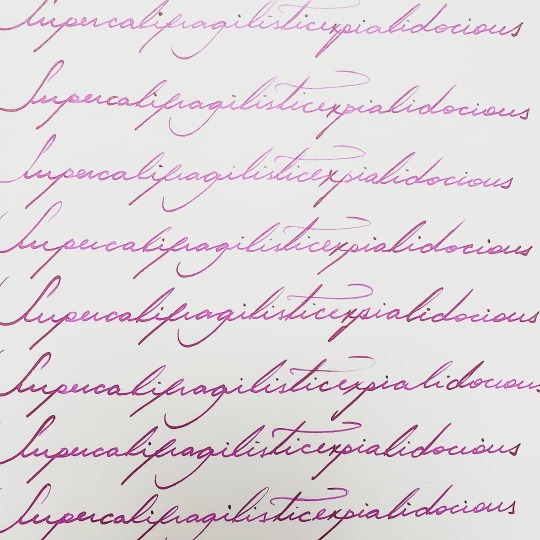 Supercalifragilisticexpialidocious
Supercalifragilisticexpialidocious
Supercalifragilisticexpialidocious
Supercalifragilisticexpialidocious
Supercalifragilisticexpialidocious
Supercalifragilisticexpialidocious
Supercalifragilisticexpialidocious
Supercalifragilisticexpialidocious